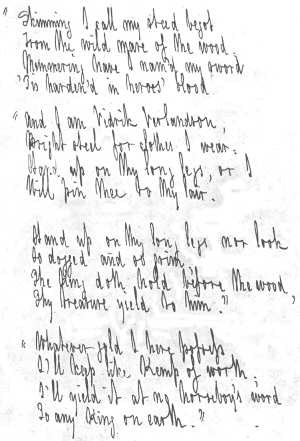 "Skimming I call my steed begot
From the wild mare of the wood.
Mimmering have I nam'd my sword
'Tis harden'd in heroes' blood.
"And I am Vidrik Verlandson,
Bright steel for clothes I wear.
Stand up on thy long legs, or I
Will pin thee to thy lair.
Stand up on thy long legs nor look
So dogged and so grim;
The King doth hold before the wood,
Thy treasure yield to him."
"Whatever gold I here possess
I'll keep like Kemp of worth,
I'll yield it at no horseboy's word
To any King on earth."